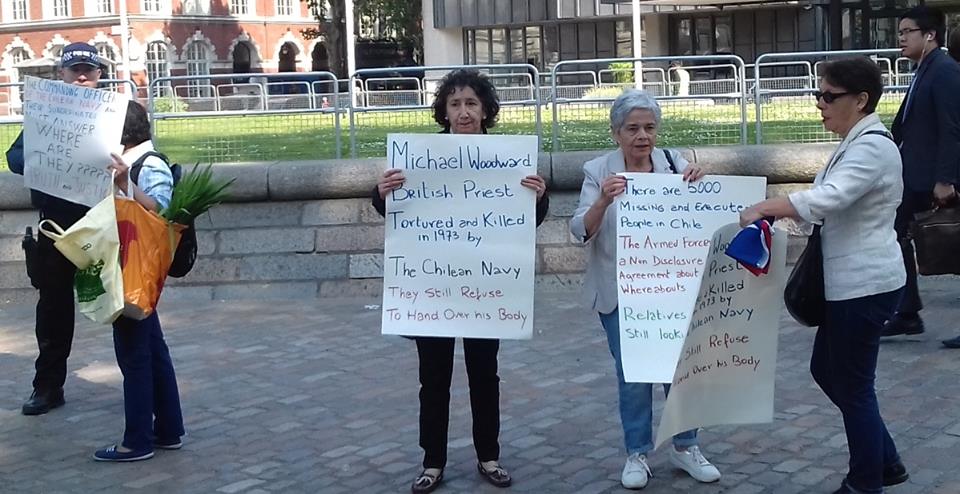 THE COMMANDING OFFICER
THE CHILEAN NAVY
THEIR SUBORDINATES
MUST ANSWER
WHERE
ARE
THEY ?????
TRUTH AND JUSTICE
Michael Woodward
British Priest
Tortured and Killed
in 1973 by
The Chilean Navy
They Still Refuse
To Hand Over his Body
There are 5000
Missing and Execute
People in Chile
The Armed Force
a Non Disclosure
Agreement about
Whereabouts
Relatives
Still looki
Woo
Priest
Killed
1973 by
Chilean Navy
Still Refuse
Hand Over his Body